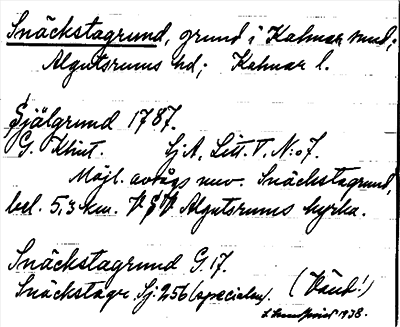 Snäckstagrund, grund i Kalmar sund;
Algutsrums hd; Kalmar l.
Själgrund 1787.
G. Klint. Sj.A, Litt. T, N:o 7.
Möjl. avtågs nuv. Snäckstagrund,
bel. 5,3 km. V Algutsrums kyrka.
Snäckstagrund G. 17.
Snäckstagr. Sj. 256 (specialen). (Vänd!)
1938.